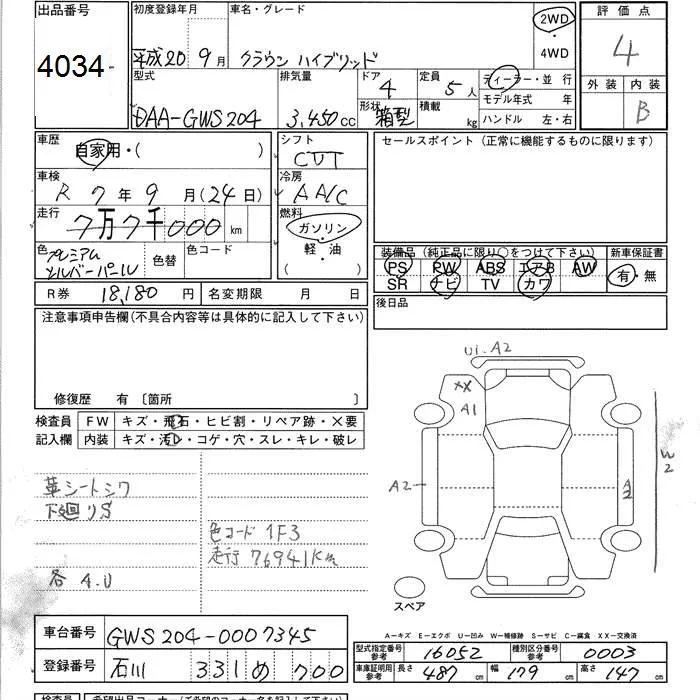 出品番号
4034
初度登録年月
平成20 9月
車名・グレード
クラウン ハイブリッド
2WD
・
4WD
評価点
4
外装 内装
B
型式
DAA-GWS204
排気量
3,450cc
ドア
4
形状
箱型
定員
5人
積載
kg
ディーラー・並行
モデル年式 年
ハンドル 左・右
車歴
自家用・( )
シフト
CVT
セールスポイント(正常に機能するものに限ります)
車検
R 7年 9月(24日)
冷房
AAC
走行
7万7千000km
燃料
ガソリン・
軽・油
( ・ )
色
プレミアム
シルバーパール
色替
色コード
装備品(純正品に限り○をつけて下さい)
PS PW ABS エアB AW
SR ナビ TV カワ
新車保証書
有・無
R券 18,180円
名変期限 月 日
後日品
注意事項申告欄(不具合内容等は具体的に記入して下さい)
修復歴 有〔箇所 〕
検査員
記入欄
FW キズ・飛石・ヒビ割・リペア跡・X要
内装 キズ・汚レ・コゲ・穴・スレ・キレ・破レ
U1・A2
XX
A1
A2
A2
W2
スペア
革シートシワ
下廻りS
各 A.U
色コード 1F3
走行 76941Km
A-キズ E-エクボ U-凹み W-補修跡 S-サビ C-腐食 XX-交換済
車台番号 GWS204-0007345
登録番号 石川 331 め 700
型式指定番号
参考
16052
種別区分番号
参考
0003
車庫証明用
参考
長さ 487cm 幅 179cm 高さ 147cm